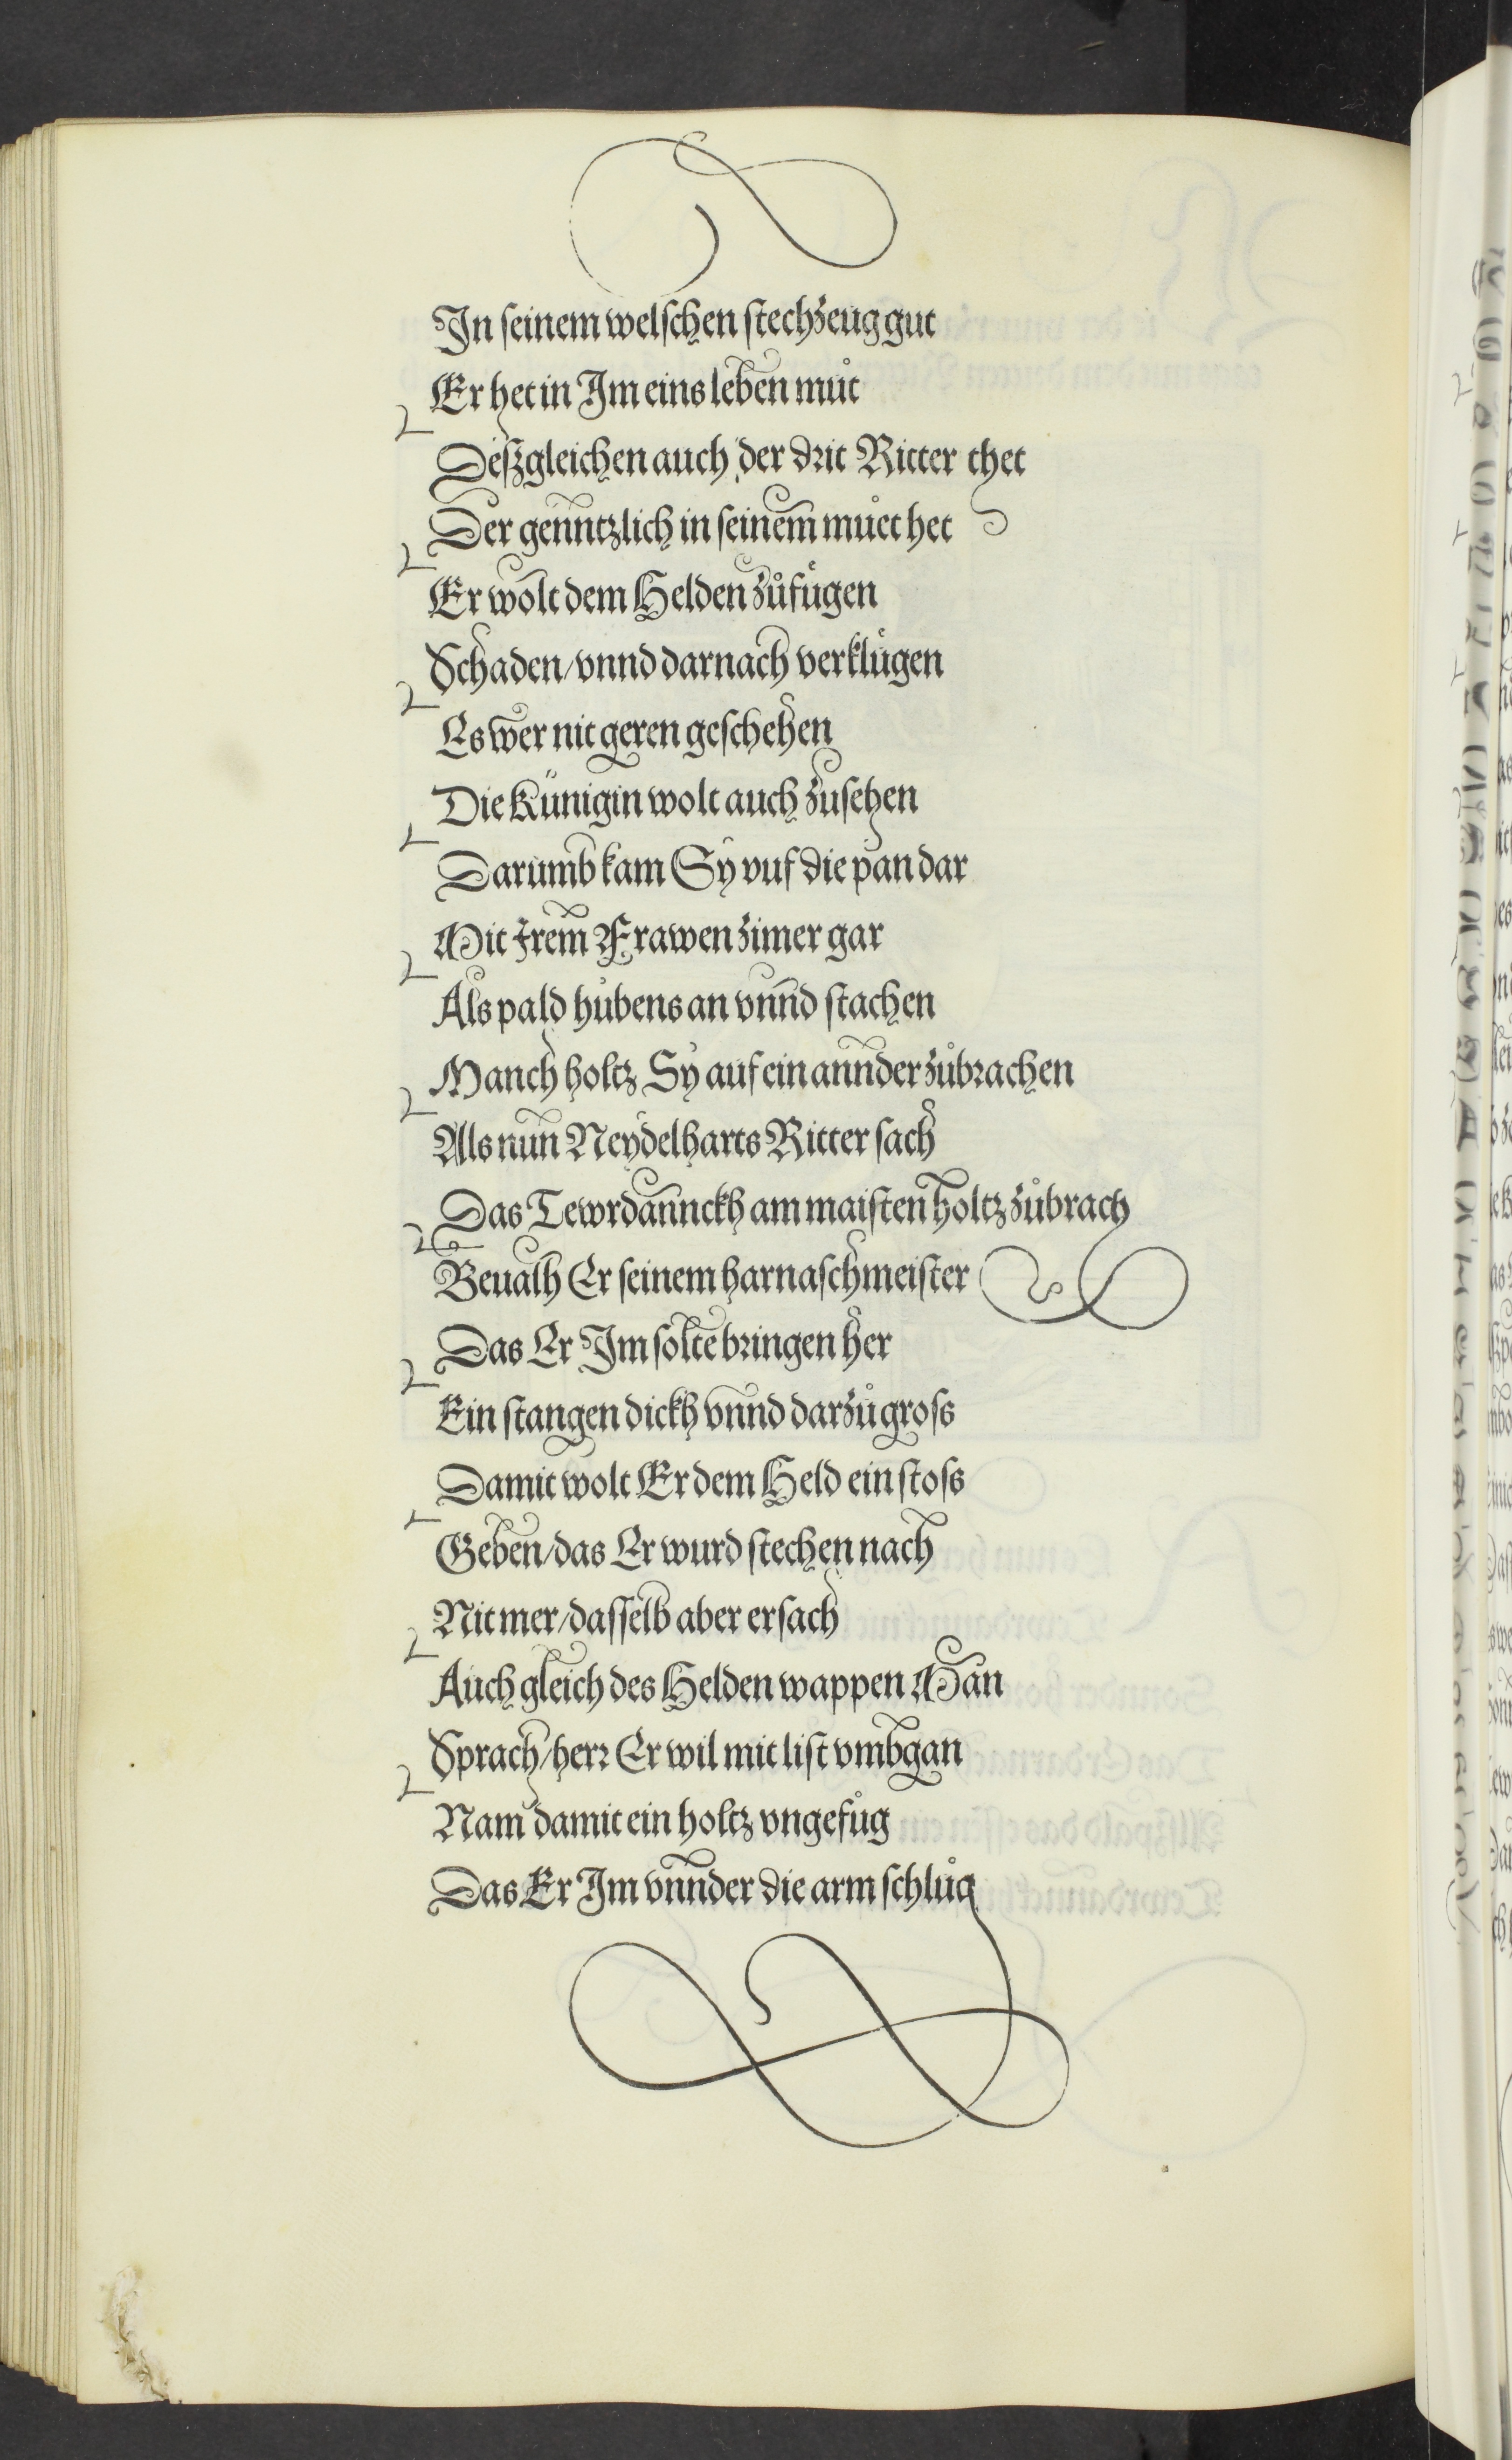 In ſeinem welſchen ſtechzeug gut
Er het in Im eins leben můt
Deſzgleichen auch der drit Ritter thet
Der genntzlich in ſeinem můet het
Er wolt dem Helden zůfůgen
Schaden/vnnd darnach verklůgen
Es wer nit geren geſchehen
Die Künigin wolt auch zuſehen
Darumb kam Sy vuf die pan dar
Mit Irem Frawenzimer gar
Als pald hůbens an vnnd ſtachen
Manch holtz Sy auf ein annder zůbrachen
Als nun Neydelharts Ritter ſach
Das Tewrdannckh am maiſten holtz zůbrach
Beualh Er ſeinem harnaſchmeiſter
Das Er Im ſolte bringen her
Ein ſtangen dickh vnnd darzů groſs
Damit wolt Er dem Held ein ſtoſs
Geben/das Er wurd ſtechen nach
Nit mer/daſſelb aber erſach
Auch gleich des Helden wappen Man
Sprach/herr Er wil mit liſt vmbgan
Nam damit ein holtz vngefůg
Das Er Im vnnder die arm ſchlůg